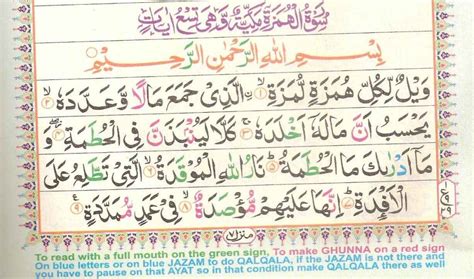 سُوۡرَةُ الۡهُمَزَةِ مَكِّيَّةٌ وَّهِیَ تِسۡعُ اٰیَاتٍ
بِسۡمِ اللّٰهِ الرَّحۡمٰنِ الرَّحِیۡمِ
وَیۡلٌ لِّكُلِّ هُمَزَةٍ لُّمَزَةِ ۙ﴿۱﴾ الَّذِیۡ جَمَعَ مَالًا وَّ عَدَّدَهٗ ۙ﴿۲﴾
یَحۡسَبُ اَنَّ مَالَهٗۤ اَخۡلَدَهٗ ۚ﴿۳﴾ كَلَّا لَیُنۡۢبَذَنَّ فِی الۡحُطَمَةِ ۫ۖ﴿۴﴾ وَ
مَاۤ اَدۡرٰىكَ مَا الۡحُطَمَةُ ؕ﴿۵﴾ نَارُ اللّٰهِ الۡمُوۡقَدَةُ ۙ﴿۶﴾ الَّتِیۡ تَطَّلِعُ عَلَی
الۡاَفۡـِٕدَةِ ؕ﴿۷﴾ اِنَّهَا عَلَیۡهِمۡ مُّؤۡصَدَةٌ ۙ﴿۸﴾ فِیۡ عَمَدٍ مُّمَدَّدَةٍ ﴿۹﴾
منزل ۷
To read with a full mouth on the green sign, To make GHUNNA on a red sign
On blue letters or on blue JAZAM to do QALQALA. if the JAZAM is not there and
you have to pause on that AYAT so in that condition make QALQALA there as well